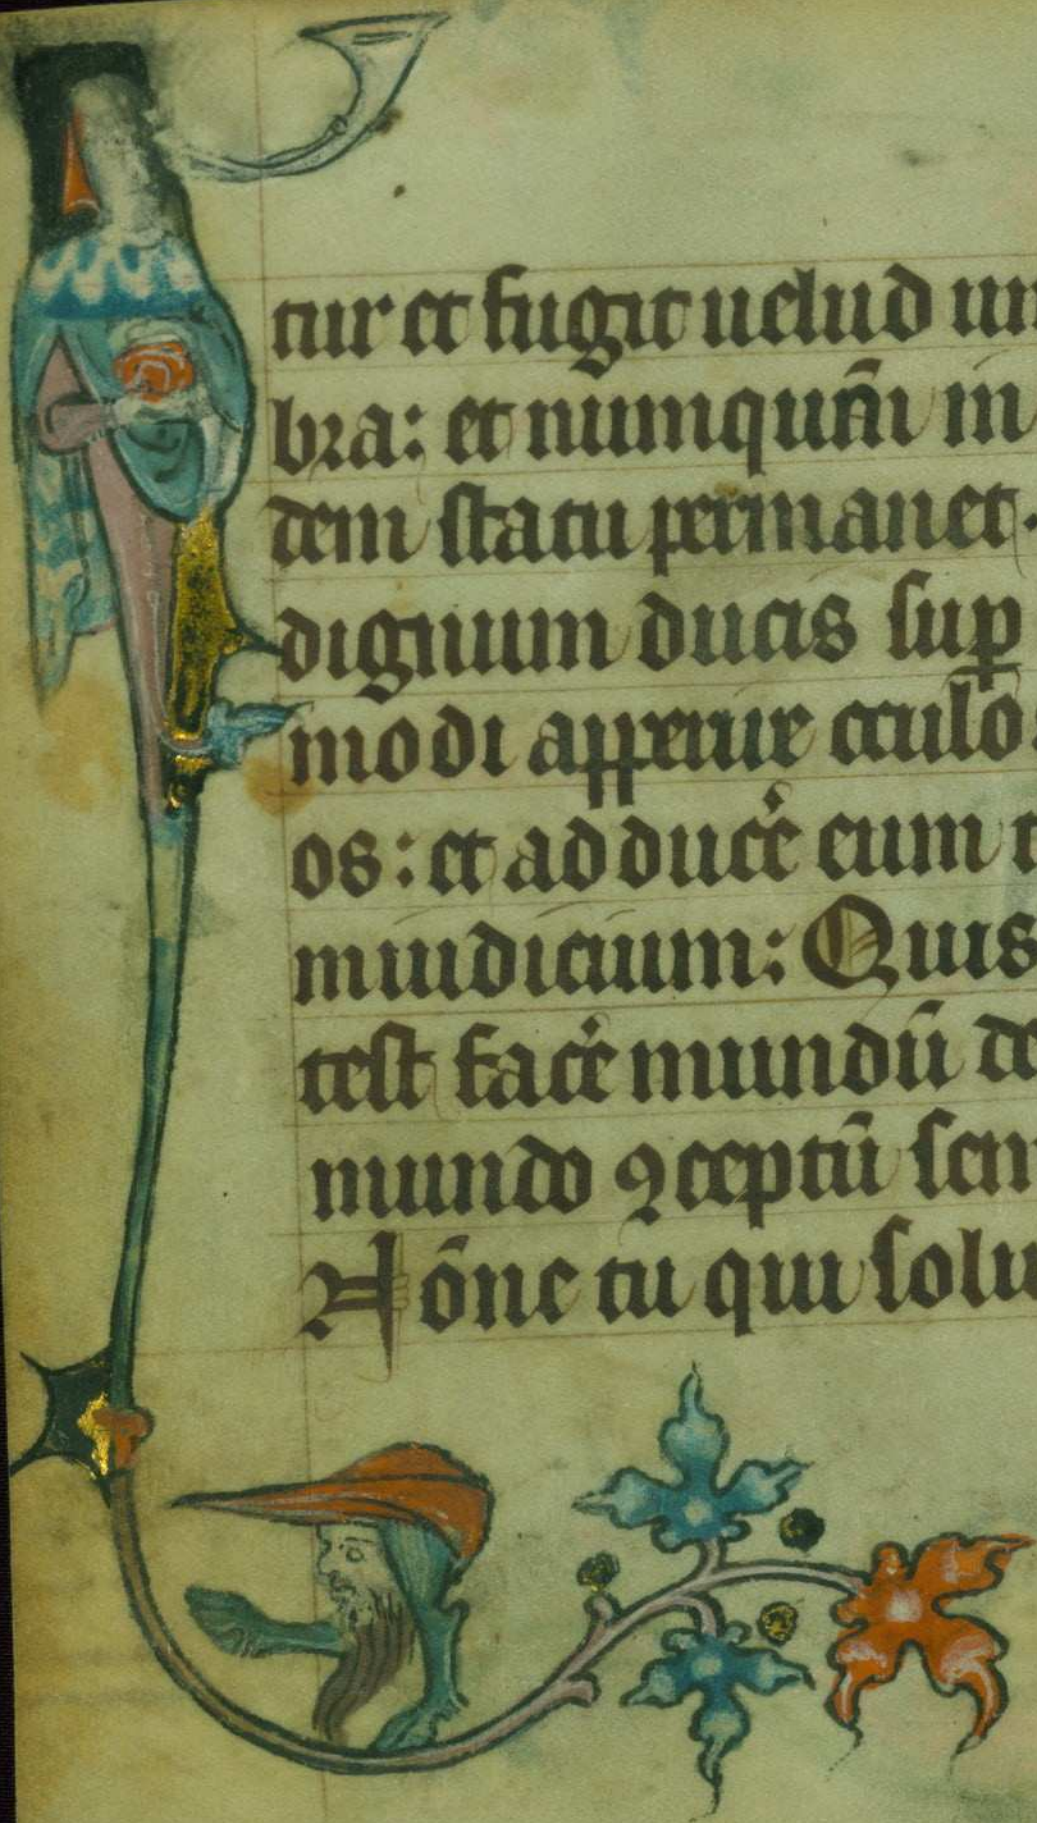 tur et fugit uelud um
bra: et numquã in
dem statu permanet.
dignum ducis sup̱
modi apperire oculos
os: et adducẽ eum t
miudicium: Quis
test facẽ mundũ de
mundo ꝯceptũ sem
Nõne tu qui solu